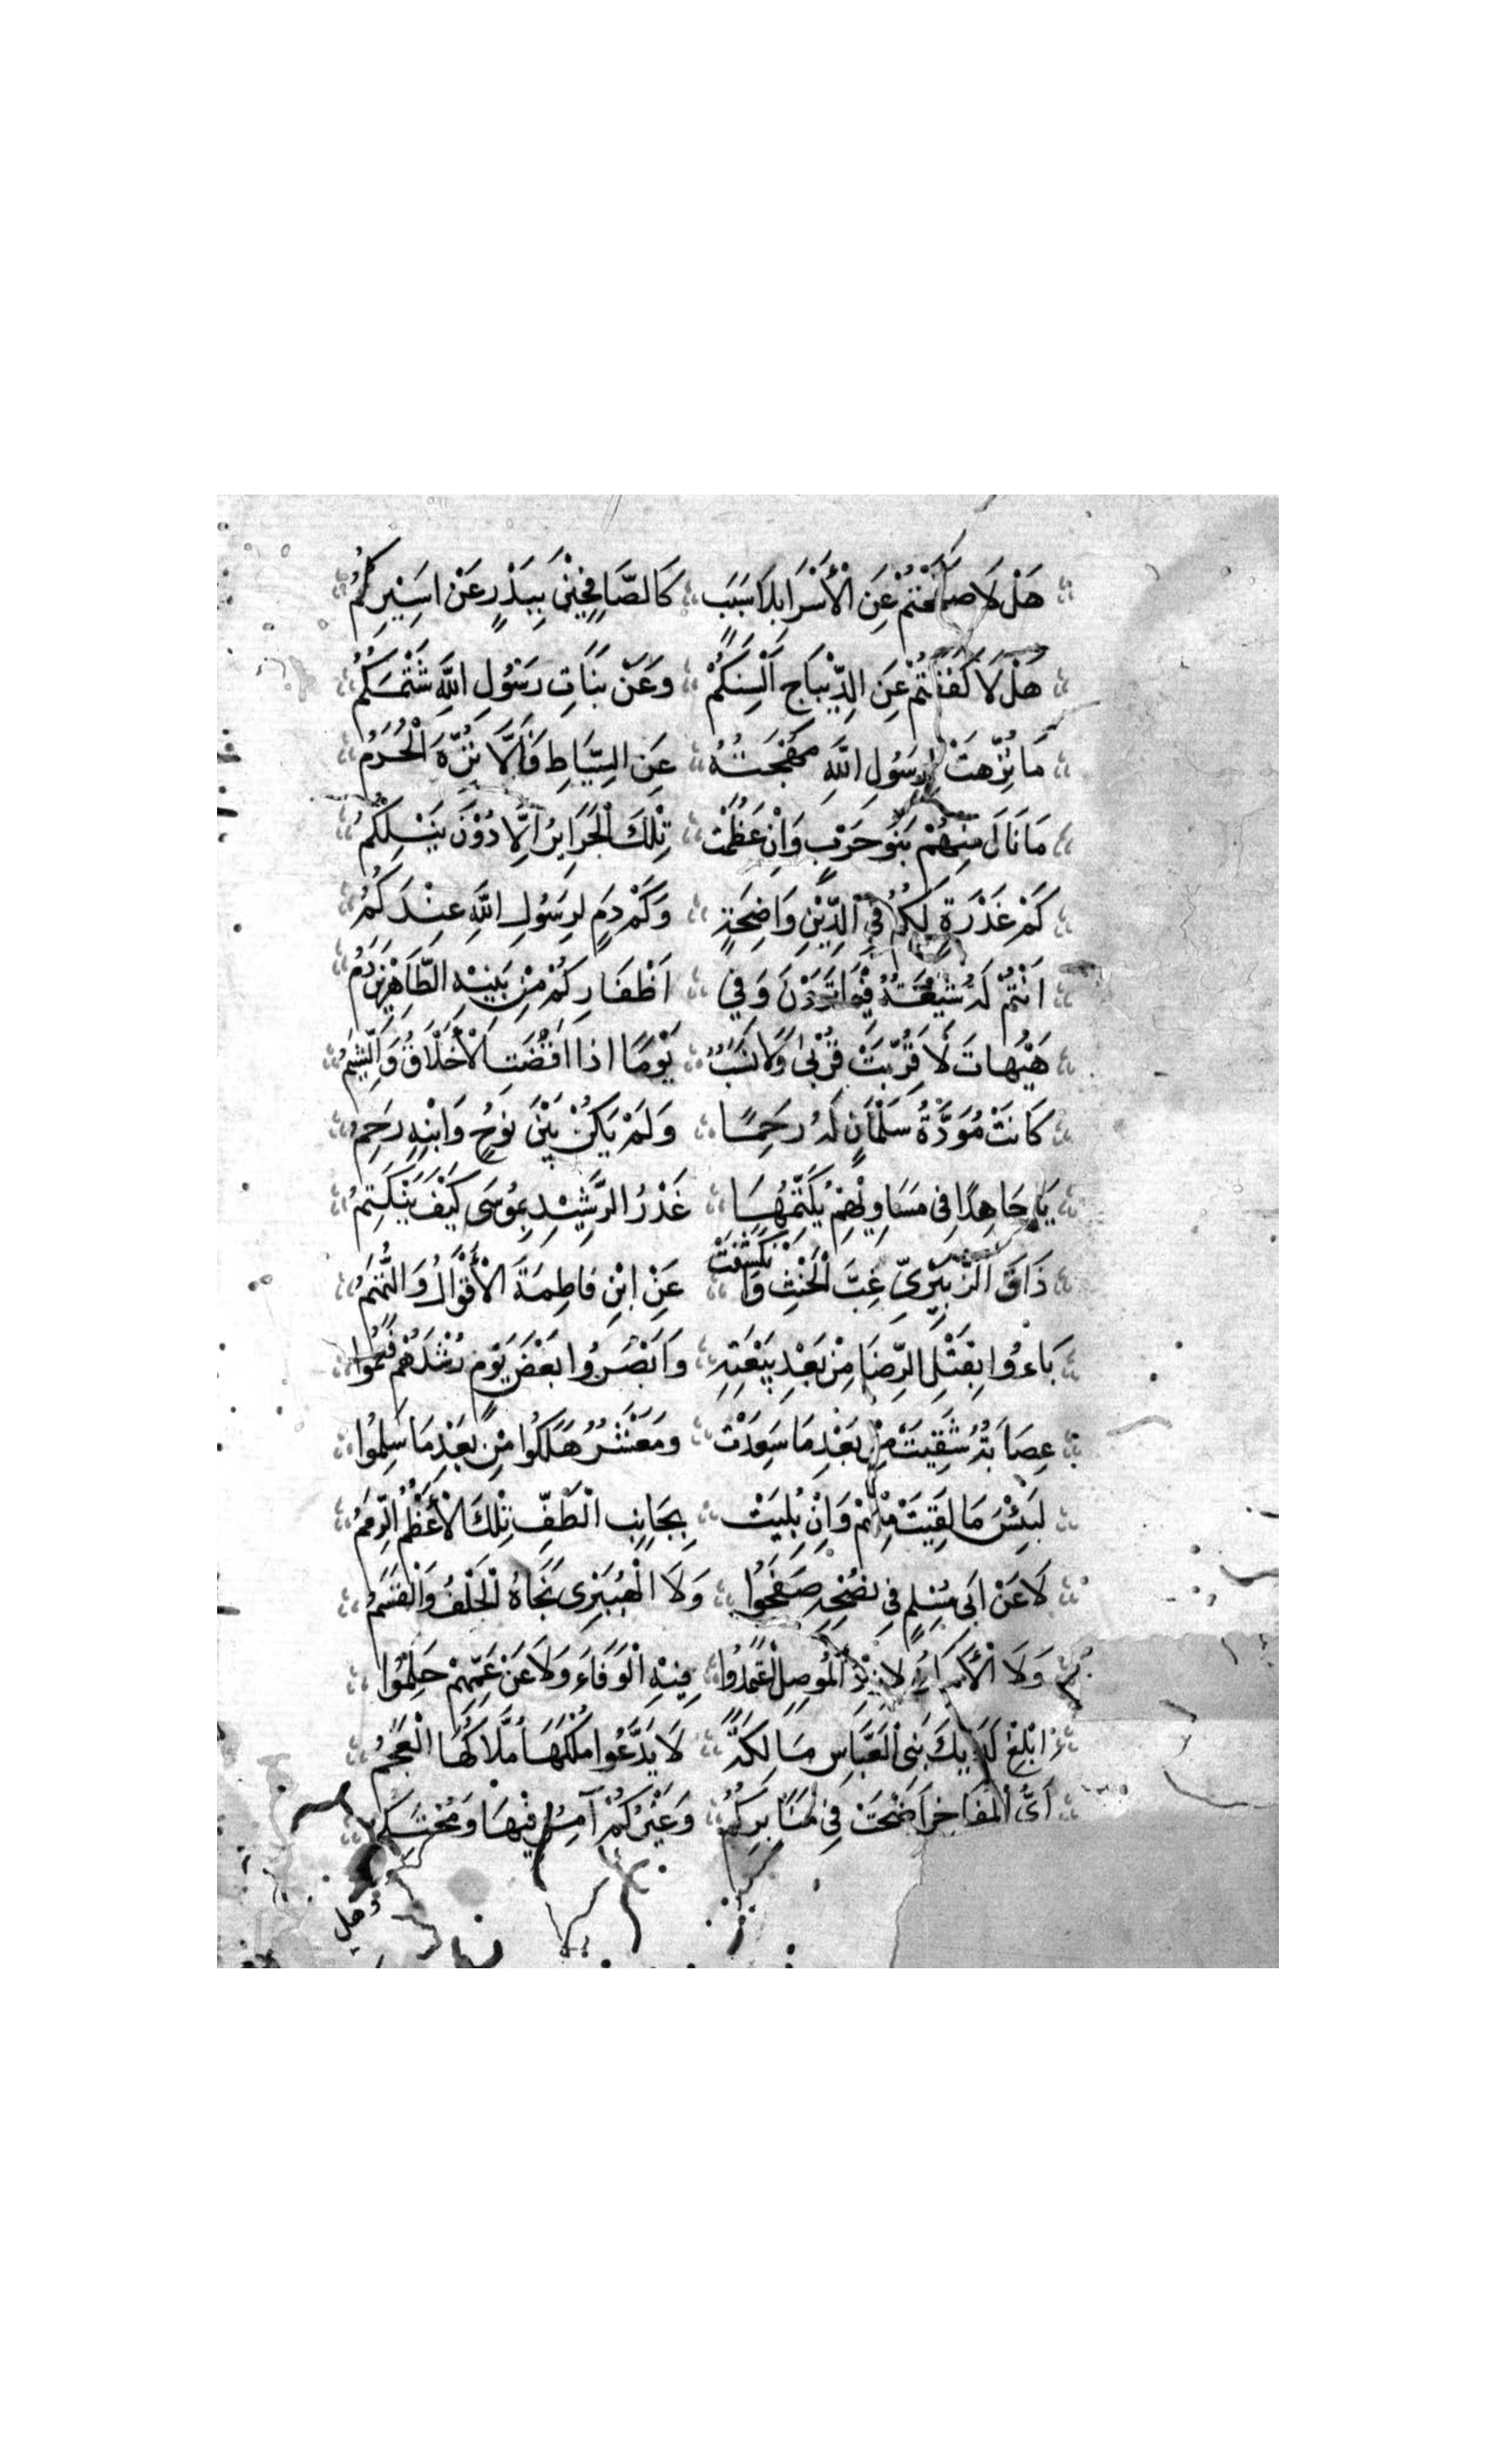 هَلْ لَا صَفَحْتُمْ عَنِ الْأَسْرَا بِلَا سَبَبٍ كَالصَّافِحِيْنَ بِبَدْرٍ عَنْ اَسِيْرِكُمُ
هَلْ لَا كَفَفْتُمْ عَنِ الدِّيْبَاجِ اَلْسِنَكُمْ وَعَنْ بَنَاتِ رَسُوْلِ اللَّهِ شَتْمَكُمُ
مَا نُزِّهَتْ لِرَسُوْلِ اللَّهِ مُهْجَتُهُ عَنِ السِّيَاطِ فَأَلَّا نُزِّهَ الْحُرَمُ
مَا نَالَ مِنْهُمْ بَنُو حَرْبٍ وَاِنْ عَظُمَتْ تِلْكَ الْجَرَايِرُ اِلَّا دُوْنَ نَيْلِكُمُ
كَمْ غَدْرَةٍ لَكُمُ فِي الدِّيْنِ وَاضِحَةٍ وَكَمْ دَمٍ لِرَسُوْلِ اللَّهِ عِنْدَكُمُ
اَنْتُمْ لَهُ شِيْعَةٌ فِيْمَا تَرَوْنَ وَفِي اَظْفَارِكُمْ مِنْ بَنِيْهِ الطَّاهِرِيْنَ دَمُ
هَيْهَاتَ لَا قَرَّبَتْ قُرْبٰى وَلَا نَسَبٌ يَوْمًا اِذَا اقْصَتِ الْأَخْلَاقُ وَالشِّيَمُ
كَانَتْ مَوَدَّةُ سَلْمَانٍ لَهُ رَحِمًا وَلَمْ يَكُنْ بَيْنَ نُوْحٍ وَابْنِهِ رَحِمُ
يَا جَاهِدًا فِى مَسَاوِيْهِمْ يُكَتِّمُهَا غَدْرُ الرَّشِيْدِ بِمُوسَى كَيْفَ يَنْكَتِمُ
ذَاقَ الزُّبَيْرِيُّ غِبَّ الْحِنْثِ وَانْكَشَفَتْ عَنِ ابْنِ فَاطِمَةَ الْأَقْوَالُ وَالتُّهَمُ
بَاءُوا بِقَتْلِ الرِّضَا مِنْ بَعْدِ بَيْعَتِهِ وَاَبْصَرُوا بَعْضَ يَوْمٍ رُشْدَهُمْ فَعَمُوا
عِصَابَةٌ شَقِيَتْ مِنْ بَعْدِ مَا سَعِدَتْ وَمَعْشَرٌ هَلَكُوا مِنْ بَعْدِ مَا سَلِمُوا
لَبِئْسَ مَا لَقِيَتْ مِنْهُمْ وَاِنْ بَلِيَتْ بِجَانِبِ الْطَّفِّ تِلْكَ الْأَعْظُمُ الرِّمَمُ
لَا عَنْ اَبِى مُسْلِمٍ فِى نُصْحِهِ صَفَحُوا وَلَا الْهُبَيْرِى نَجَّاهُ الْحَلْفُ وَالْقَسَمُ
وَلَا الْأَمَانُ لِأَزْدِ الْمُوصِلِ اعْتَمَدُوا فِيْهِ الْوَفَاءَ وَلَا عَنْ عَمِّهِمْ حَلِمُوا
اَبْلِغْ لَدَيْكَ بَنِى الْعَبَّاسِ مَالِكَةً لَا يَدَّعُوا مُلْكَهَا مُلَّاكُهَا الْعَجَمُ
اَىُّ الْمَفَاخِرِ اَضْحَتْ فِى مَنَابِرِكُمْ وَغَيْرُكُمْ آمِرٌ فِيْهَا وَمُحْتَكِمُ
هل